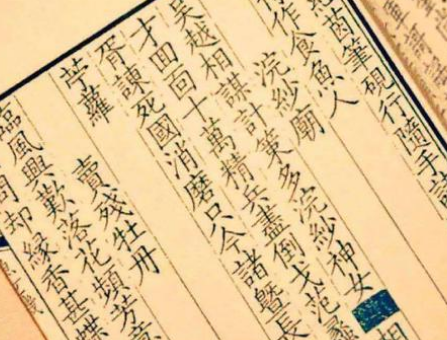 茵筆硯行隨手
作食魚人
浣紗廟
吳越相謀計策多浣紗神女 相
才回面十萬精兵盡倒戈范蠡
胥諫死國消磨只今諸暨長
苧蘿
賣殘牡丹
臨風興歎落花頻芳意
却緣香甚蝶